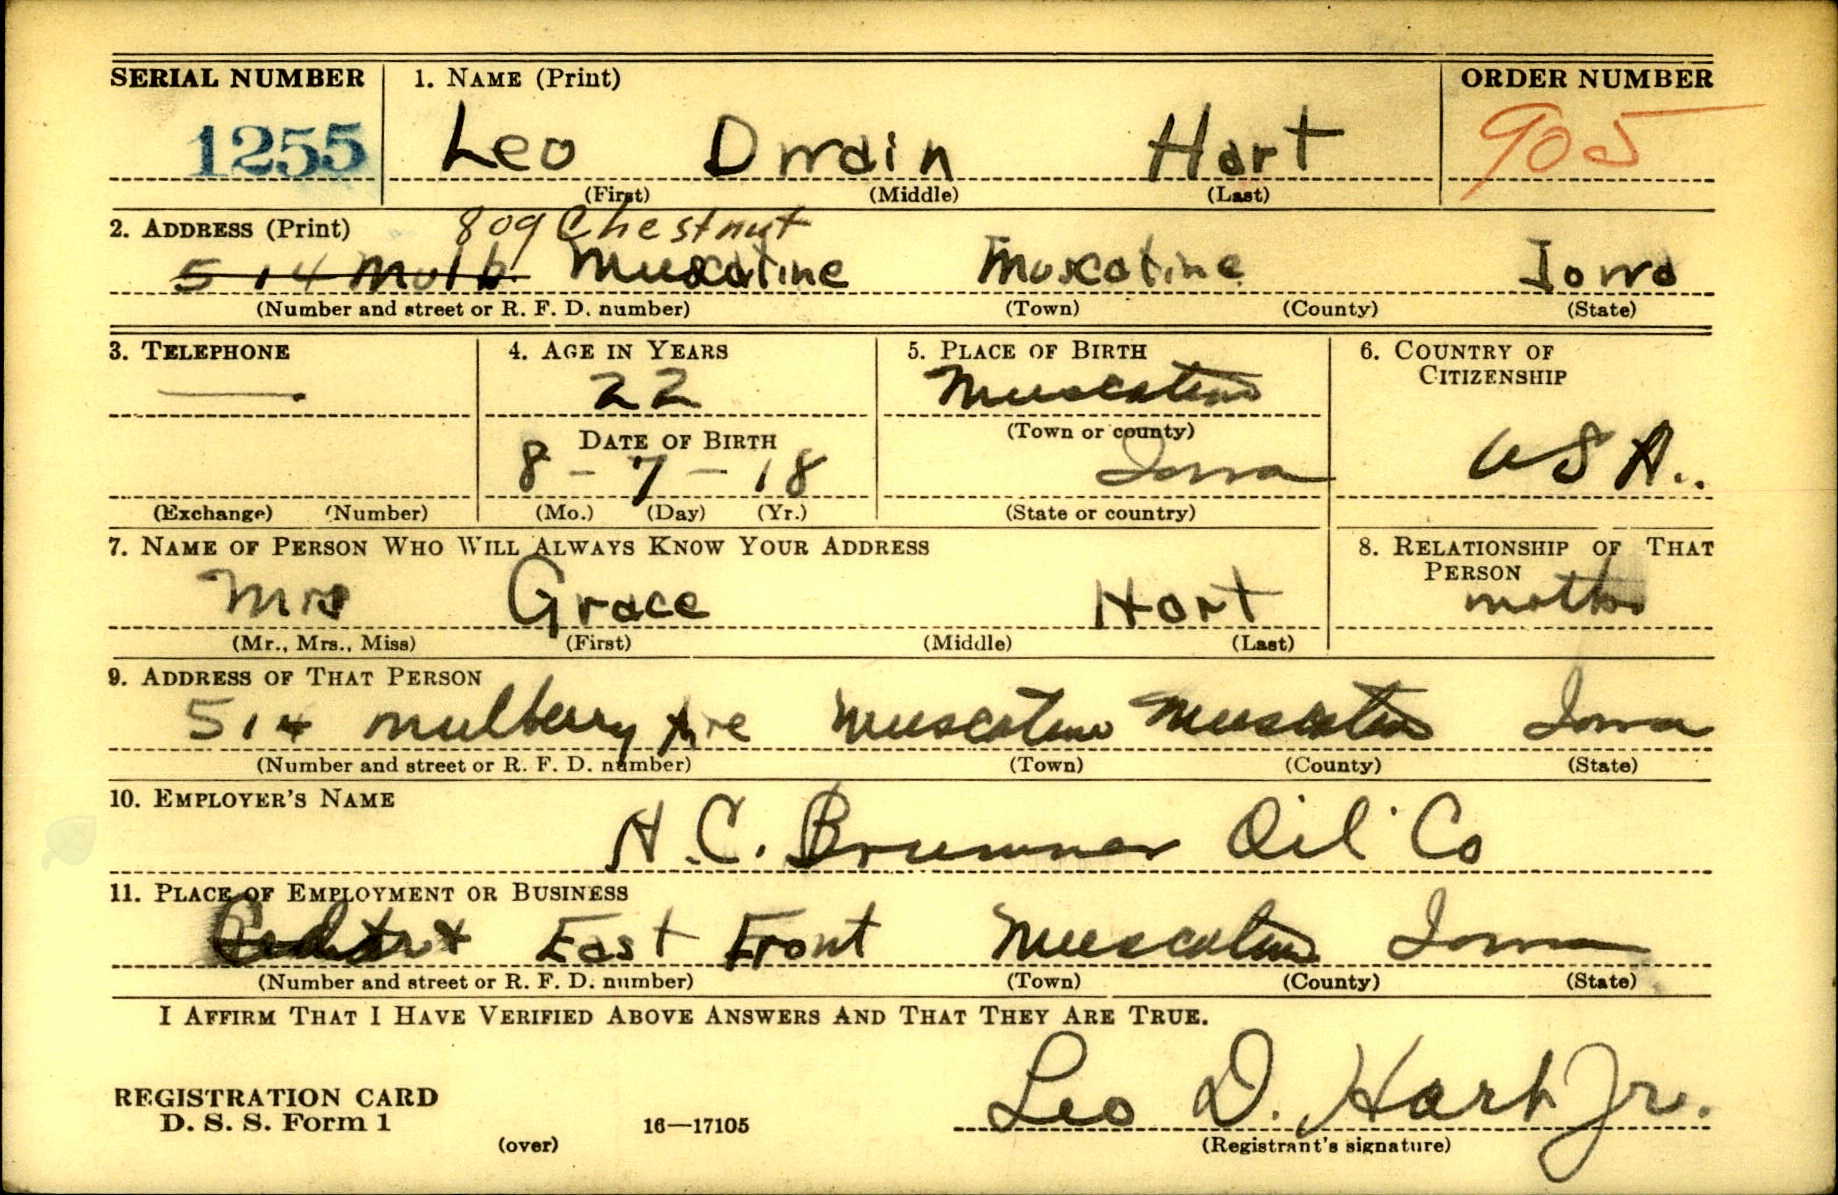 SERIAL NUMBER 1. NAME (Print) ORDER NUMBER
1255 Leo Dwain Hart 905
(First) (Middle) (Last)
2. ADDRESS (Print) 809 Chestnut
514 Mulb. Muscatine Muscatine Iowa
(Number and street or R. F. D. number) (Town) (County) (State)
3. TELEPHONE 4. AGE IN YEARS 5. PLACE OF BIRTH 6. COUNTRY OF
CITIZENSHIP
22 Muscatine
DATE OF BIRTH (Town or county)
8-7-18 Iowa USA..
(Exchange) (Number) (Mo.) (Day) (Yr.) (State or country)
7. NAME OF PERSON WHO WILL ALWAYS KNOW YOUR ADDRESS 8. RELATIONSHIP OF THAT
PERSON
Mrs Grace Hart mother
(Mr., Mrs., Miss) (First) (Middle) (Last)
9. ADDRESS OF THAT PERSON
514 Mulberry Ave Muscatine Muscatine Iowa
(Number and street or R. F. D. number) (Town) (County) (State)
10. EMPLOYER'S NAME
H.C. Brummer Oil Co
11. PLACE OF EMPLOYMENT OR BUSINESS
East Front Muscatine Iowa
(Number and street or R. F. D. number) (Town) (County) (State)
I AFFIRM THAT I HAVE VERIFIED ABOVE ANSWERS AND THAT THEY ARE TRUE.
Leo D. Hart Jr.
REGISTRATION CARD
D. S. S. Form 1
(over) 16—17105 (Registrant's signature)